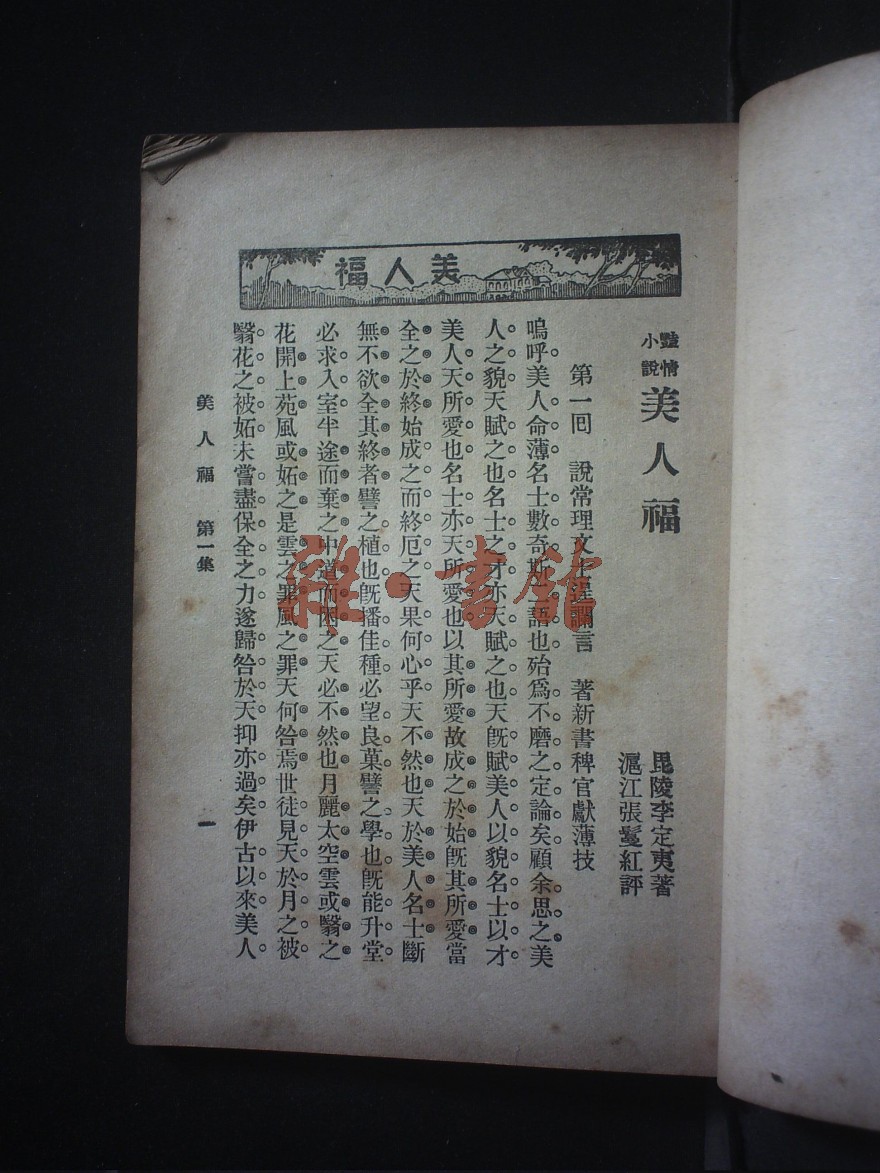 美人福
豔情小說 美人福
毘陵李定夷著
滬江張鬘紅評
第一回 說常理文士逞讕言 著新書稗官獻薄技
嗚呼美人命薄名士數奇斯語也殆爲不磨之定論矣顧余思之美
人之貌天賦之也名士之才亦天賦之也天旣賦美人以貌名士以才
美人天所愛也名士亦天所愛也以其所愛故成之於始旣其所愛當
全之於終始成之而終厄之天果何心乎天不然也天於美人名士斷
無不欲全其終者譬之植也旣播佳種必望良菓譬之學也旣能升堂
必求入室半途而棄之中道而困之天必不然也月麗太空雲或翳之
花開上苑風或妬之是雲之罪風之罪天何咎焉世徒見天於月之被
翳花之被妬未嘗盡保全之力遂歸咎於天抑亦過矣伊古以來美人
美人福 第一集
一
雜·書館